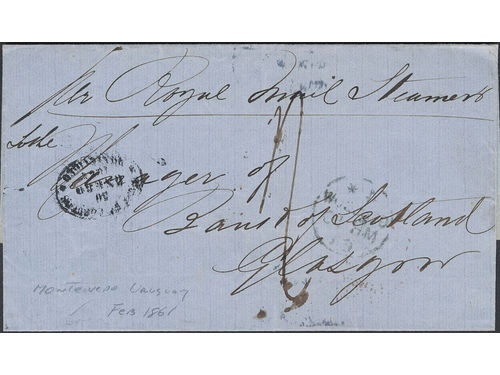 Per Royal Mail Steamers
To the Manager of
Bank of Scotland
Glasgow
1/
30
ENERO
Montevideo Uruguay
Feb 1861